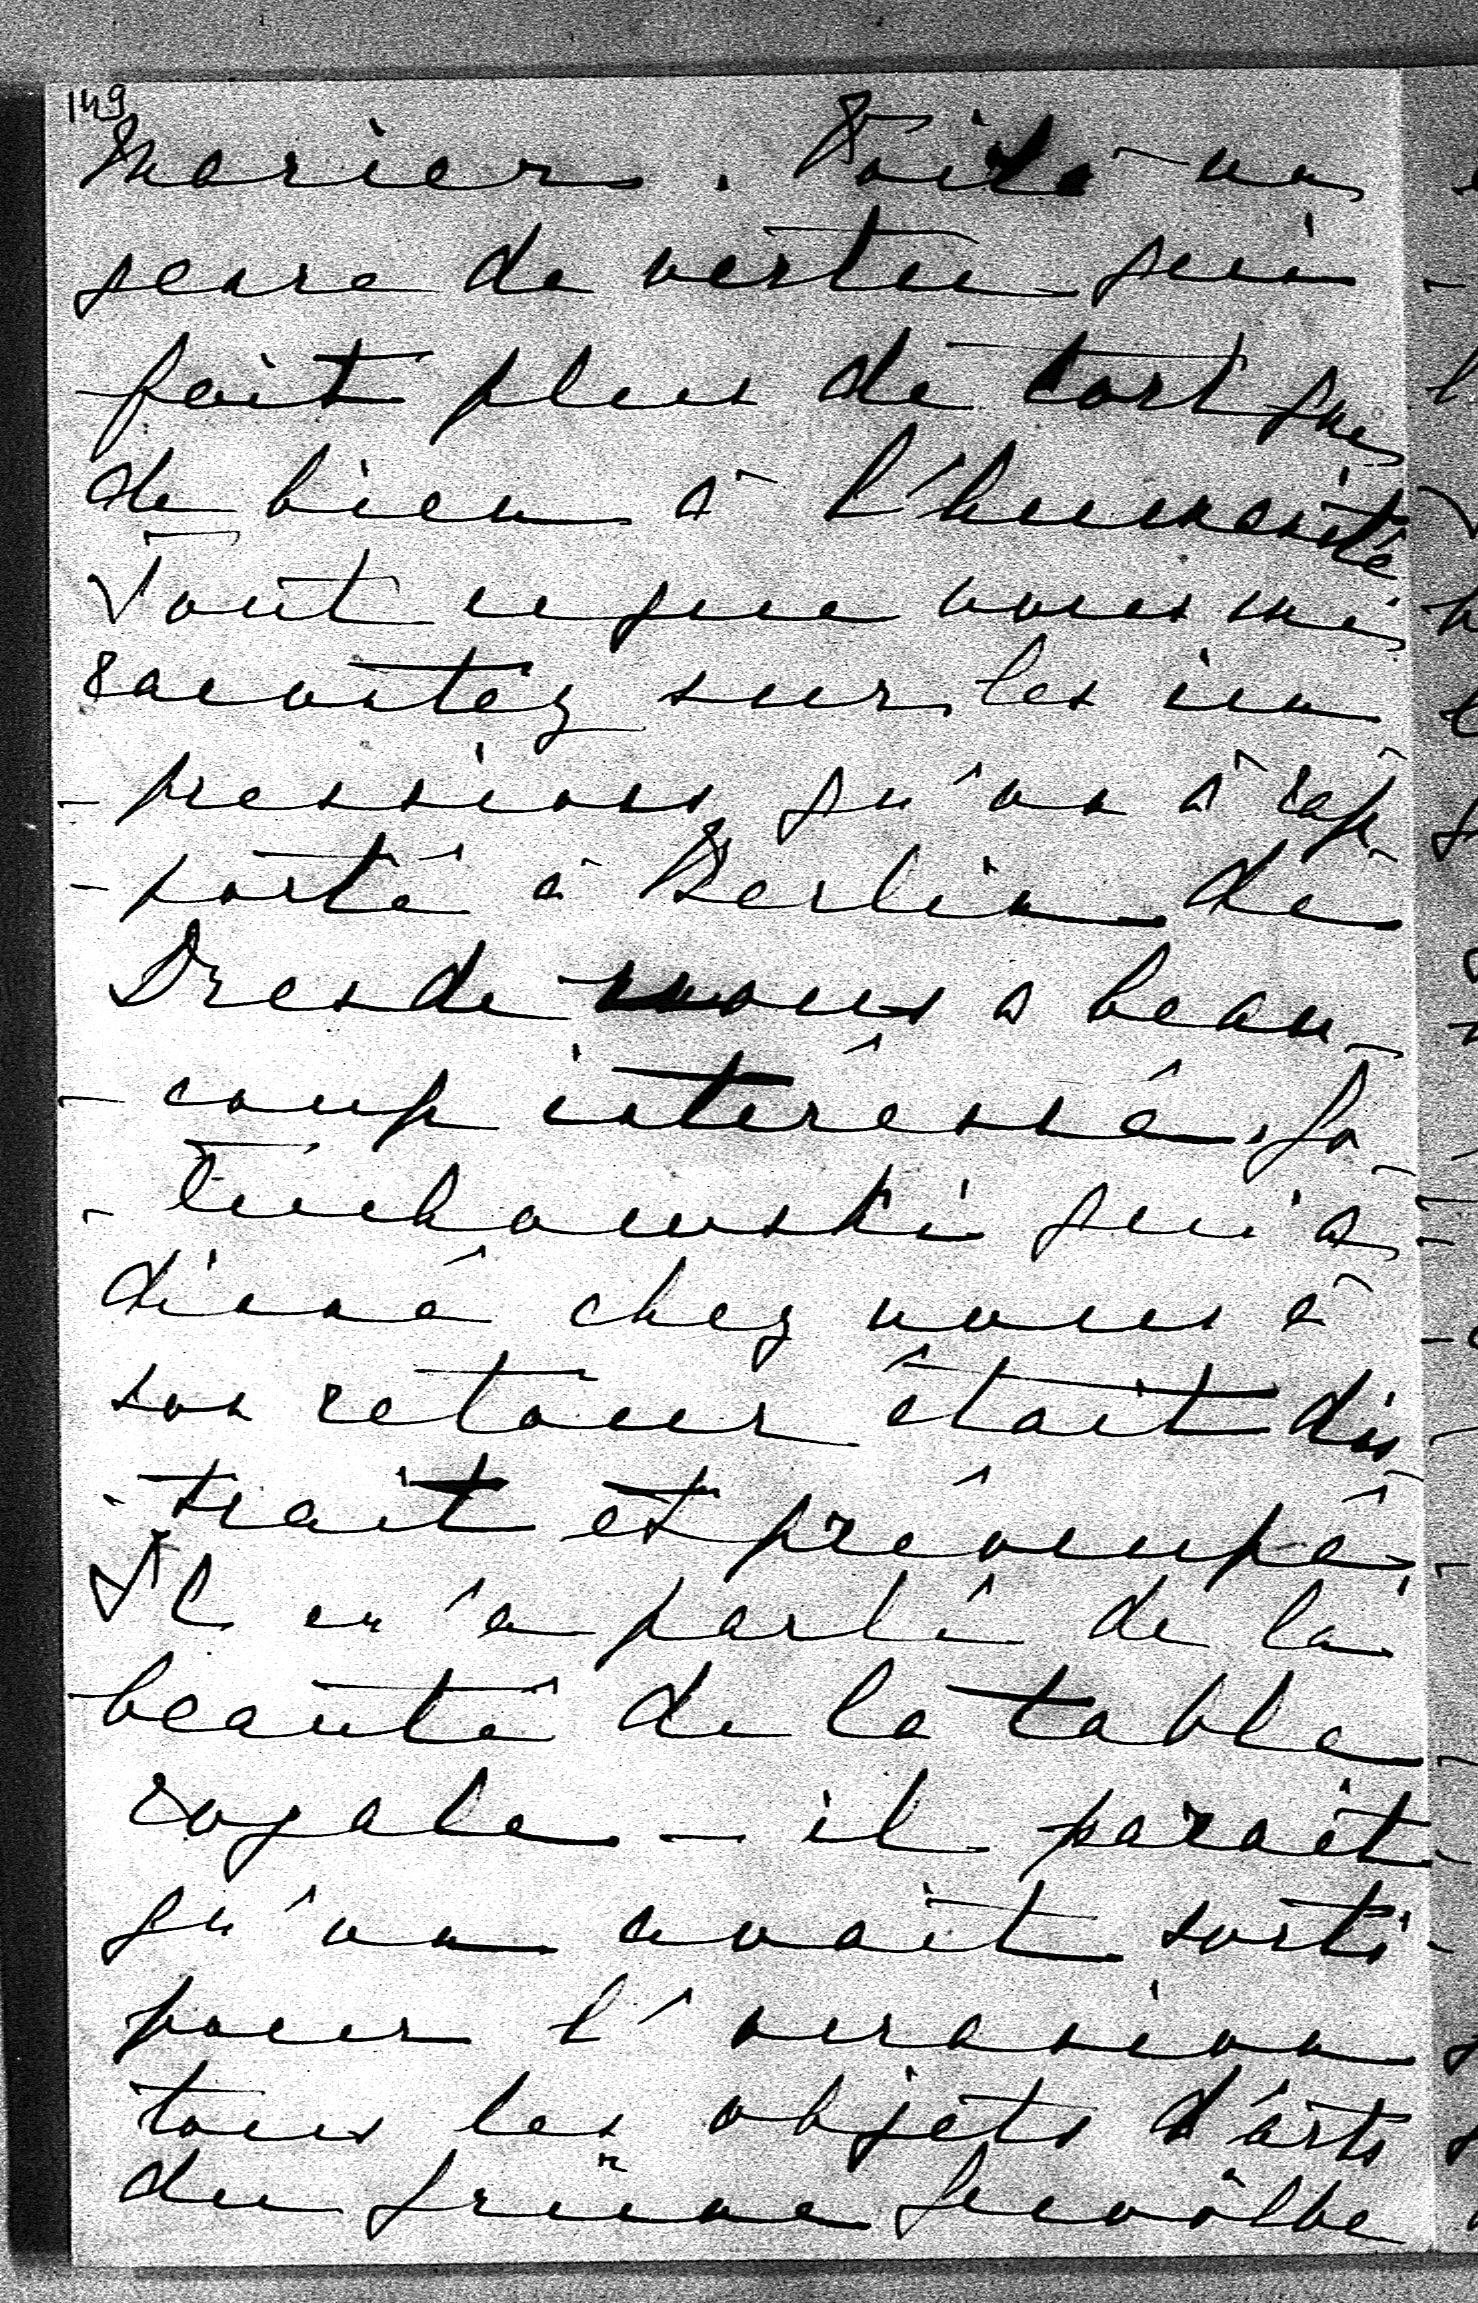 149
Marier. Voilà un
genre de vertu qui
fait plus de tort que
de bien à l'humanité
Tout ce que vous me
racontez sur les im
- pressions qu'on a rap-
- porté à Berlin de
Dresde nous a beau-
- coup intéressé. Ja
- tuchowski qui a
dinné chez nous à
son retour était dis
- trait et préocupé
Il m'a parlé de la
beauté de la table
royale - il parait
qu'on avait sorti
pour l'occasion
tous les objets d'arts
du grüne Gewölbe